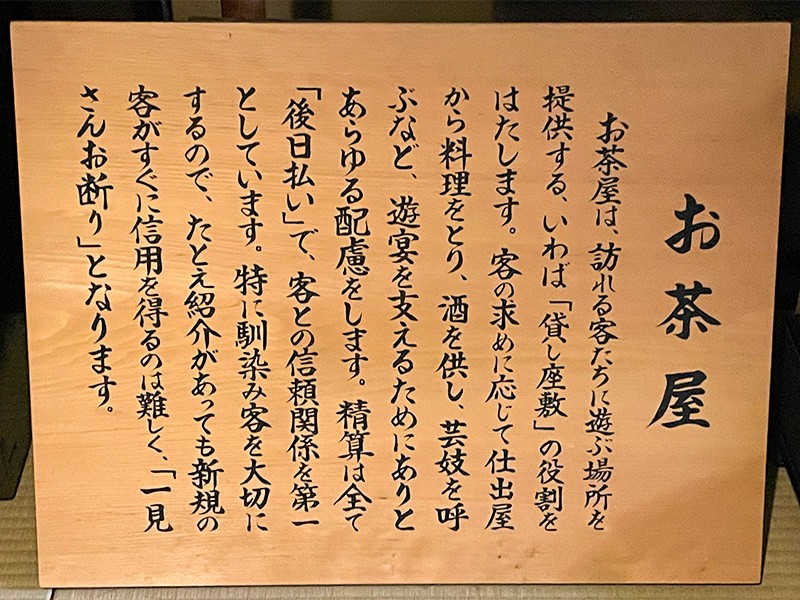 お茶屋
お茶屋は、訪れる客たちに遊ぶ場所を
提供する、いわば「貸し座敷」の役割を
はたします。客の求めに応じて仕出屋
から料理をとり、酒を供し、芸妓を呼
ぶなど、遊宴を支えるためにありと
あらゆる配慮をします。精算は全て
「後日払い」で、客との信頼関係を第一
としています。特に馴染み客を大切に
するので、たとえ紹介があっても新規の
客がすぐに信用を得るのは難しく、「一見
さんお断り」となります。